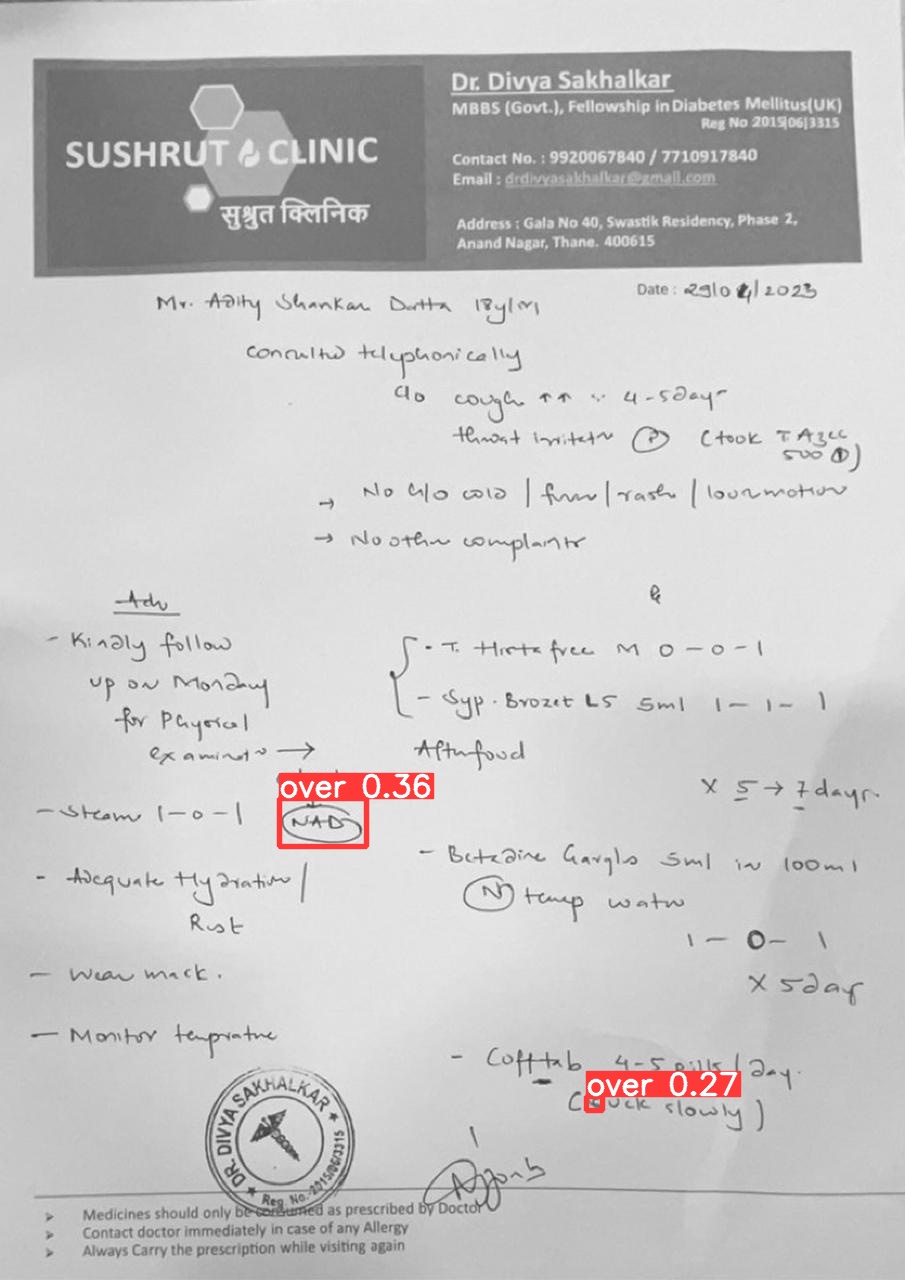 SUSHRUT CLINIC
सुश्रुत क्लिनिक
Dr. Divya Sakhalkar
MBBS (Govt.), Fellowship in Diabetes Mellitus(UK)
Reg No 2015|06|3315
Contact No. : 9920067840 / 7710917840
Email : drdivyasakhalkar@gmail.com
Address : Gala No 40, Swastik Residency, Phase 2,
Anand Nagar, Thane. 400615
Date : 29/04/2023
Mr. Adity Shankar Dutta 18y/M
consulted telephonically
c/o cough ↑↑ 4-5days
throat irritatn (took T Azee
500 ①)
→ No c/o cold / fever / rash / loosemotion
→ No other complaints
Adv
- Kindly follow
up on Monday
for Physical
examinatn →
NAD
- Steam 1-0-1
- Adequate Hydration /
Rest
- Wear mask.
- Monitor temprature
- T. Histafree M 0-0-1
- Syp. Brozet LS 5ml 1-1-1
After food
x 5 → 7 days.
- Betadine Gargles 5ml in 100ml
(N) temp water
1-0-1
x 5 day
- Cofftab 4-5 pills / day.
(suck slowly)
over 0.36
over 0.27
DR. DIVYA SAKHALKAR
Reg. No.-2015/06/3315
➢ Medicines should only be consumed as prescribed by Doctor
➢ Contact doctor immediately in case of any Allergy
➢ Always Carry the prescription while visiting again